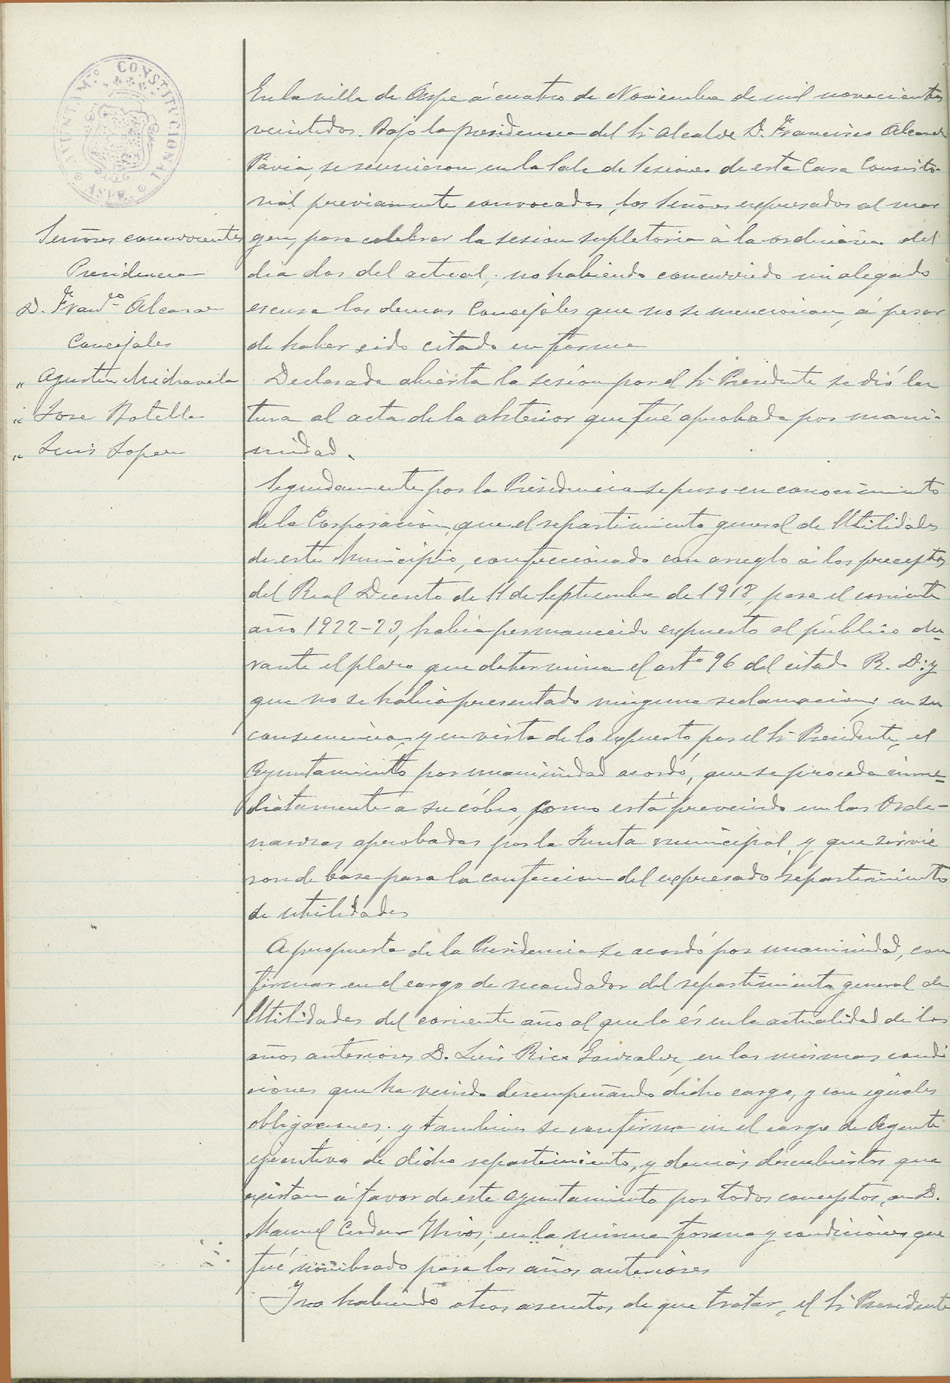 AYUNTAMTO CONSTITUCIONAL
ASPE
Señores concurrentes
Presidencia
D. Francº Alcaraz
Concejales
" Agustin Michavila
" Jose Botella
" Luis Lopez
En la villa de Aspe á cuatro de Noviembre de mil novecientos
veintidos. Bajo la presidencia del Sr Alcalde D. Francisco Alcaraz
Pavia, se reunieron en la Sala de Sesiones de esta Casa Consisto-
rial previamente convocados, los Señores expresados al mar
gen, para celebrar la sesion supletoria á la ordinaria del
dia dos del actual; no habiendo concurrido ni alegado
escusa los demas Concejales que no se mencionan, á pesar
de haber sido citado en forma
Declarada abierta la sesion por el Sr Presidente se dió lec
tura al acta de la anterior que fué aprobada por unani-
midad.
Seguidamente por la Presidencia se puso en conocimiento
de la Corporación, que el repartimiento general de Utilidades
de este Municipio, confeccionado con arreglo á los preceptos
del Real Decreto de 11 de Septiembre de 1918, para el corriente
año 1922-23, habia permanecido expuesto al público du-
rante el plazo que determina el artº 96 del citado R. D: y
que no se habia presentado ninguna reclamacion; en su
consecuencia, y en vista de lo expuesto por el Sr Presidente, el
Ayuntamiento por unanimidad acordó, que se proceda inme-
diatamente a su cóbro, como está prevenido en las Orde-
nanzas aprobadas por la Junta municipal, y que sirvie
ron de base para la confeccion del expresado repartimiento
de utilidades
A propuesta de la Presidencia se acordó por unanimidad, con
firmar en el cargo de recaudador del repartimiento general de
Utilidades del corriente año al que lo és en la actualidad de los
años anteriores D. Luis Rico Gonzalez, en las mismas condi
ciones que ha venido desempeñando dicho cargo, y con iguales
obligaciones; y tambien se confirma en el cargo de Agente
ejecutivo de dicho repartimiento, y demás descubiertos que
existan á favor de este Ayuntamiento por todos conceptos, en D.
Manuel Cerdan en la misma forma y condiciones que
fué nombrado para los años anteriores
Y no habiendo otros asuntos, de que tratar, el Sr Presidente